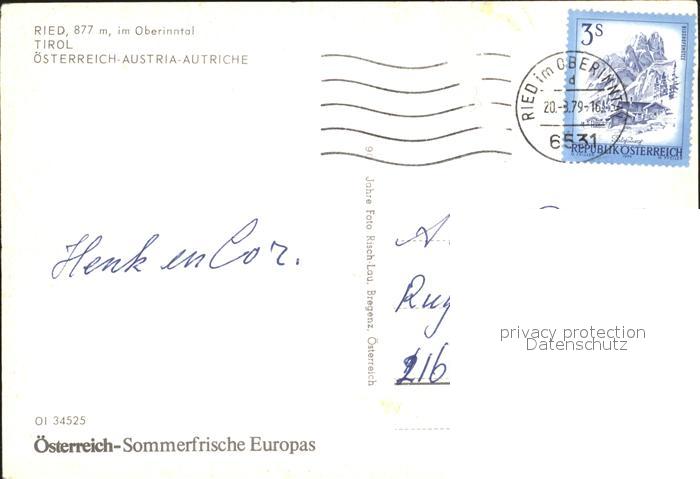 RIED, 877 m, im Oberinntal
TIROL
ÖSTERREICH-AUSTRIA-AUTRICHE
3S
RIED im OBERINNT
d
20.-8.79-16
6531
REPUBLIK ÖSTERREICH
Jahre Foto Risch-Lau, Bregenz, Österreich
Henk en Cor.
A
Rug
216
privacy protection
Datenschutz
OI 34525
Österreich-Sommerfrische Europas